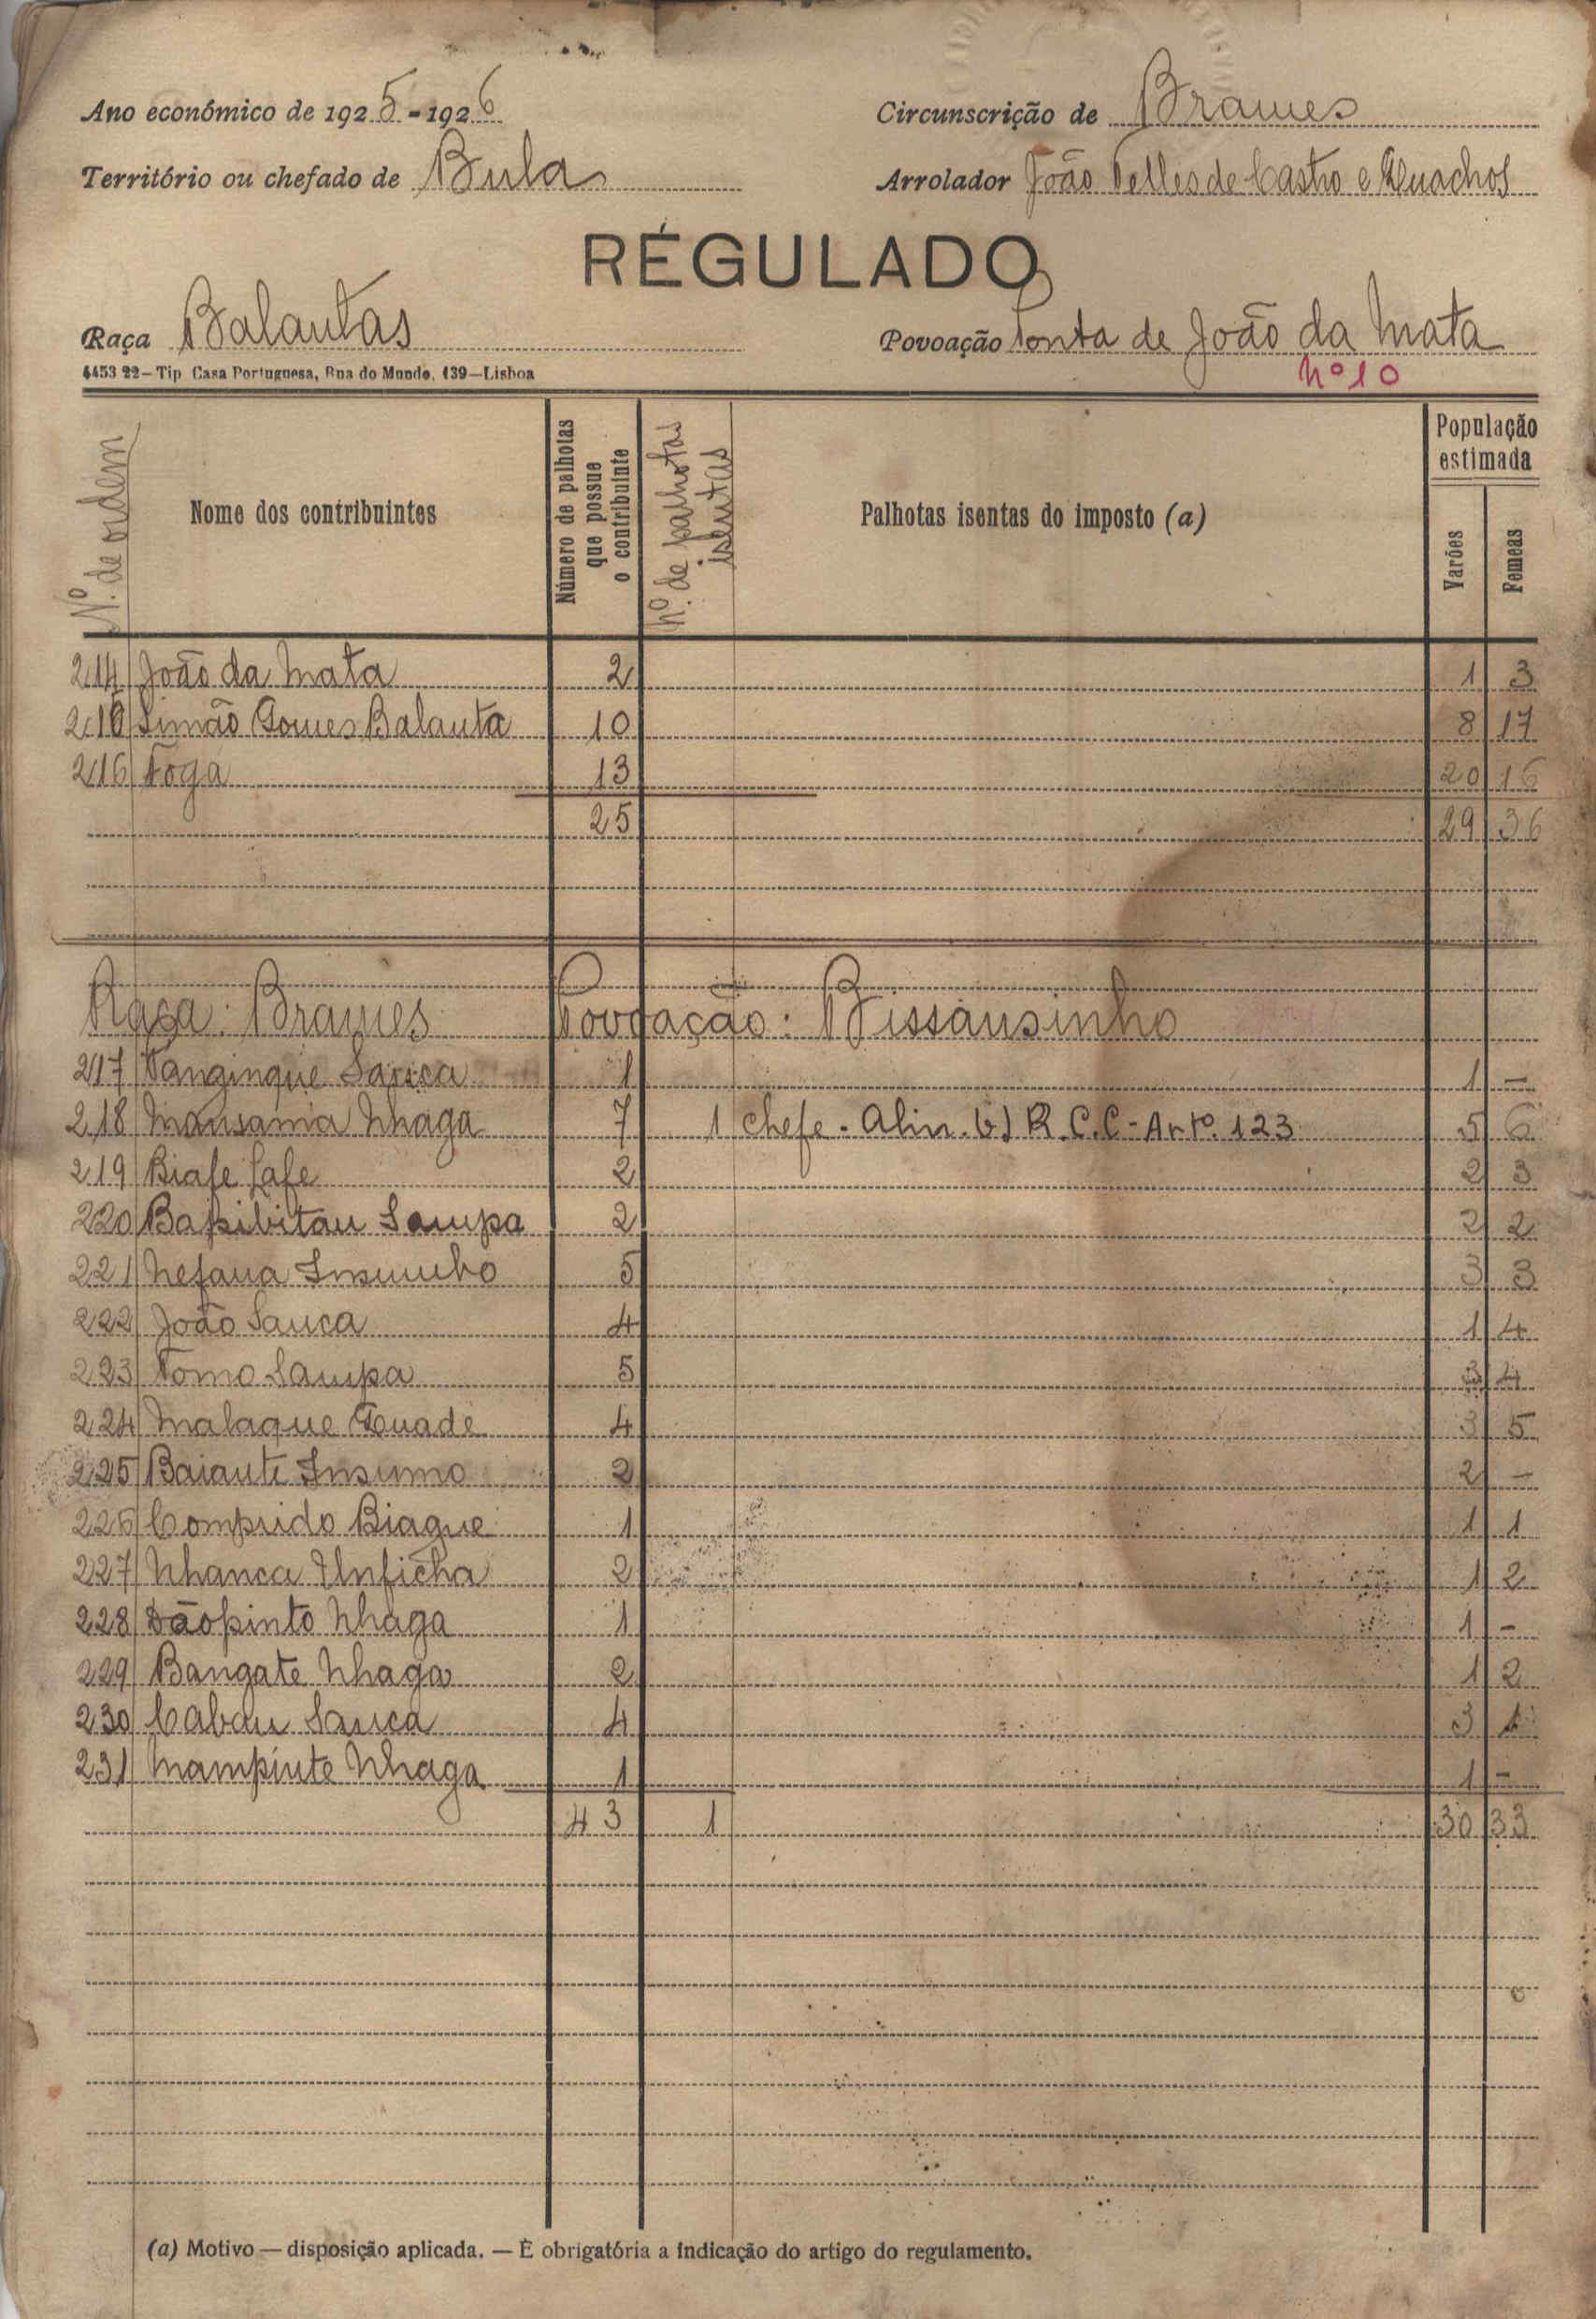 Ano económico de 1925-1926
Circunscrição de Brames
Território ou chefado de Bula
Arrolador João Telles de Castro e
RÉGULADO
Raça Balantas
Povoação Ponta de João da Mata
4453 22—Tip. Casa Portuguesa, Rua do Mundo, 139—Lisboa
Nº 10
Nº. de ordem
Nome dos contribuintes
Número de palhotas que possue o contribuinte
Nº. de palhotas isentas
Palhotas isentas do imposto (a)
População estimada
Varões
Femeas
214 João da Mata 2 1 3
215 Simão Gomes Balanta 10 8 17
216 Toga 13 20 16
25 29 36
Raça: Brames Povoação: Bissausinho
217 Sanca 1 1 -
218 Mansama Nhaga 7 1 chefe - Alin. b) R.C.C - Artº. 123 5 6
219 Biafe Cafe 2 2 3
220 Sampa 2 2 2
221 Nefana 5 3 3
222 João Sanca 4 1 4
223 Tomo Sampa 5 3 4
224 Malaque Quade 4 3 5
225 Baiante Insumo 2 2 -
226 Comprido Biague 1 1 1
227 Nhanca Unficha 2 1 2
228 Nhaga 1 1 -
229 Bangate Nhaga 2 1 2
230 Cabau Sanca 4 3 1
231 Mampinte Nhaga 1 1 -
43 1 30 33
(a) Motivo — disposição aplicada. — É obrigatória a indicação do artigo do regulamento.